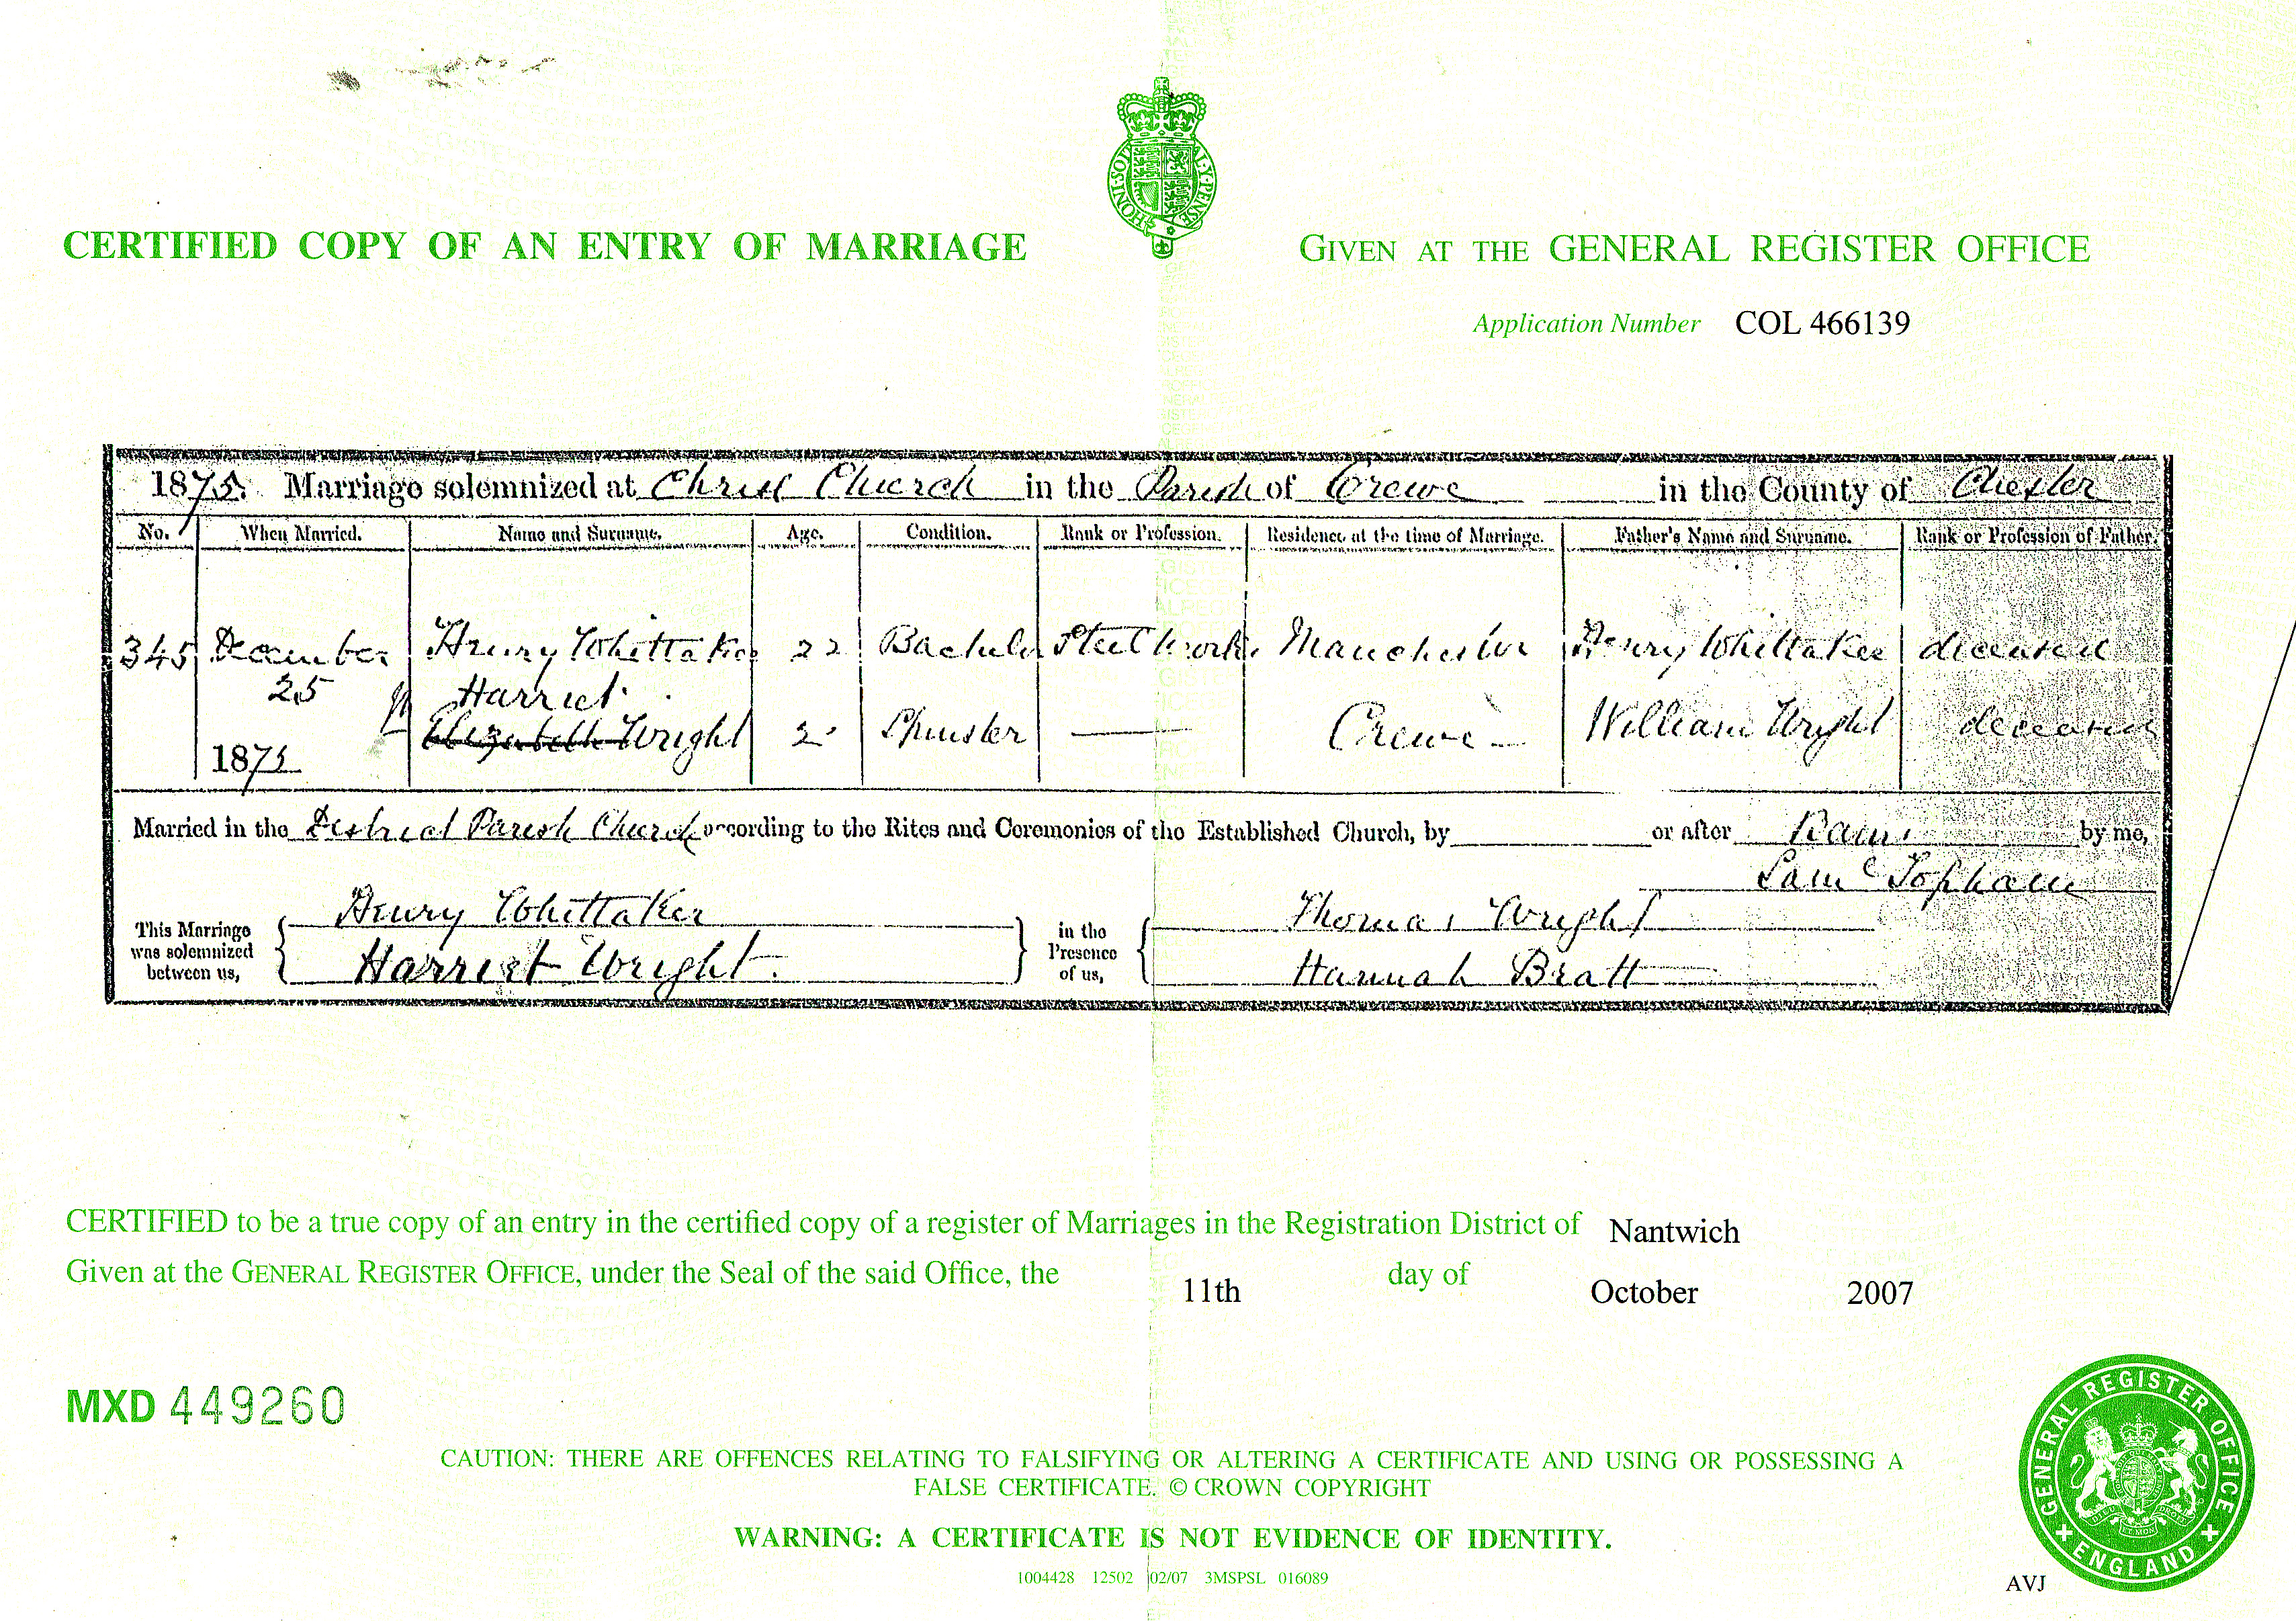 HONI·SOIT AL·Y·PENSE
CERTIFIED COPY OF AN ENTRY OF MARRIAGE
GIVEN AT THE GENERAL REGISTER OFFICE
Application Number COL 466139
1875. Marriage solemnized at Christ Church in the Parish of Crewe in the County of Chester
No. When Married. Name and Surname. Age. Condition. Rank or Profession. Residence at the time of Marriage. Father's Name and Surname. Rank or Profession of Father.
345 December Henry Whittaker 22 Bachelor Steel Worker Manchester Henry Whittaker deceased
25 Harriet
1875 Elizabeth Wright 2 Spinster — Crewe William Wright deceased
Married in the District Parish Church according to the Rites and Ceremonies of the Established Church, by or after Banns by me,
Saml Topham
This Marriage was solemnized between us, Henry Whittaker in the Presence of us, Thomas Wright
Harriet Wright. Hannah Bratt
CERTIFIED to be a true copy of an entry in the certified copy of a register of Marriages in the Registration District of Nantwich
Given at the GENERAL REGISTER OFFICE, under the Seal of the said Office, the 11th day of October 2007
MXD 449260
CAUTION: THERE ARE OFFENCES RELATING TO FALSIFYING OR ALTERING A CERTIFICATE AND USING OR POSSESSING A
FALSE CERTIFICATE. © CROWN COPYRIGHT
WARNING: A CERTIFICATE IS NOT EVIDENCE OF IDENTITY.
1004428 12502 02/07 3MSPSL 016089
GENERAL REGISTER OFFICE
ENGLAND
AVJ